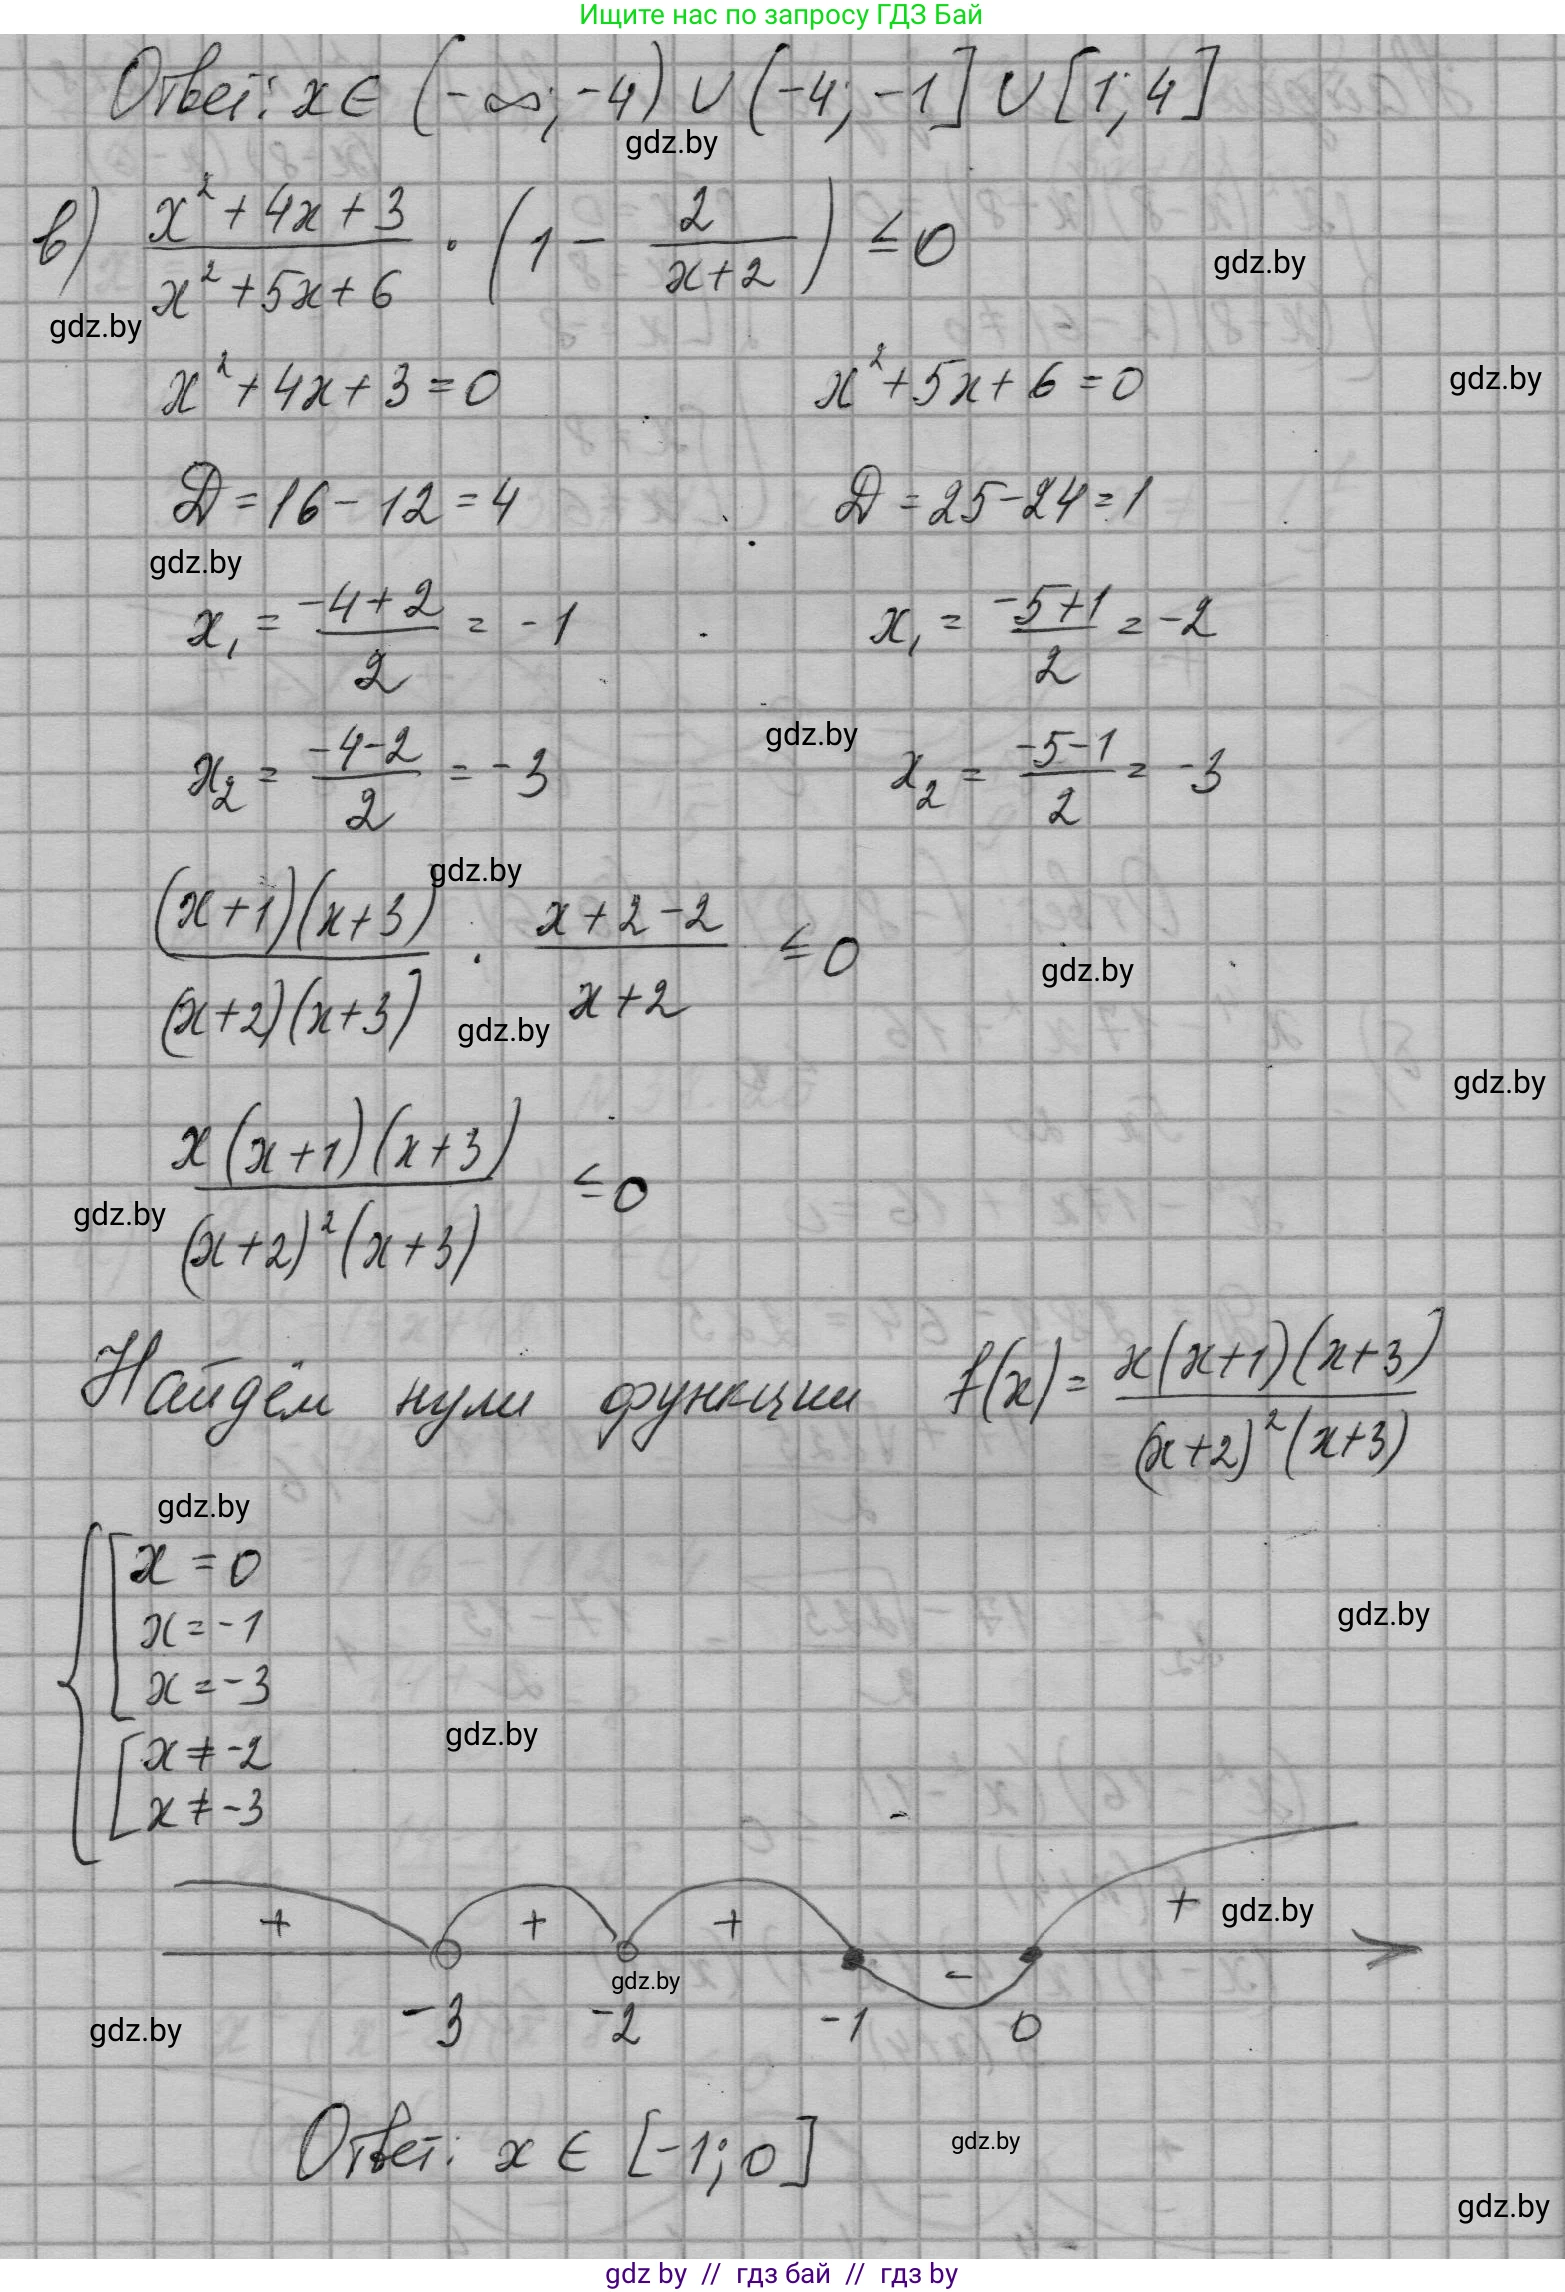 Ищите нас по запросу ГДЗ Бай
Ответ: x ∈ (-∞; -4) ∪ (-4; -1] ∪ [1; 4]
gdz.by
в) (x² + 4x + 3)/(x² + 5x + 6) · (1 - 2/(x+2)) ≤ 0
gdz.by
gdz.by
x² + 4x + 3 = 0 x² + 5x + 6 = 0
gdz.by
D = 16 - 12 = 4 D = 25 - 24 = 1
gdz.by
x₁ = (-4+2)/2 = -1 x₁ = (-5+1)/2 = -2
gdz.by
x₂ = (-4-2)/2 = -3 x₂ = (-5-1)/2 = -3
gdz.by
((x+1)(x+3))/((x+2)(x+3)) · (x+2-2)/(x+2) ≤ 0
gdz.by
gdz.by
gdz.by
(x(x+1)(x+3))/((x+2)²(x+3)) ≤ 0
gdz.by
Найдём нули функции f(x) = (x(x+1)(x+3))/((x+2)²(x+3))
gdz.by
x = 0
x = -1
gdz.by
x = -3
gdz.by
x ≠ -2
x ≠ -3
-
+ + + - +
gdz.by
gdz.by
-3 -2 -1 0
gdz.by
Ответ: x ∈ [-1; 0]
gdz.by
gdz.by
gdz by // гдз бай // гдз by